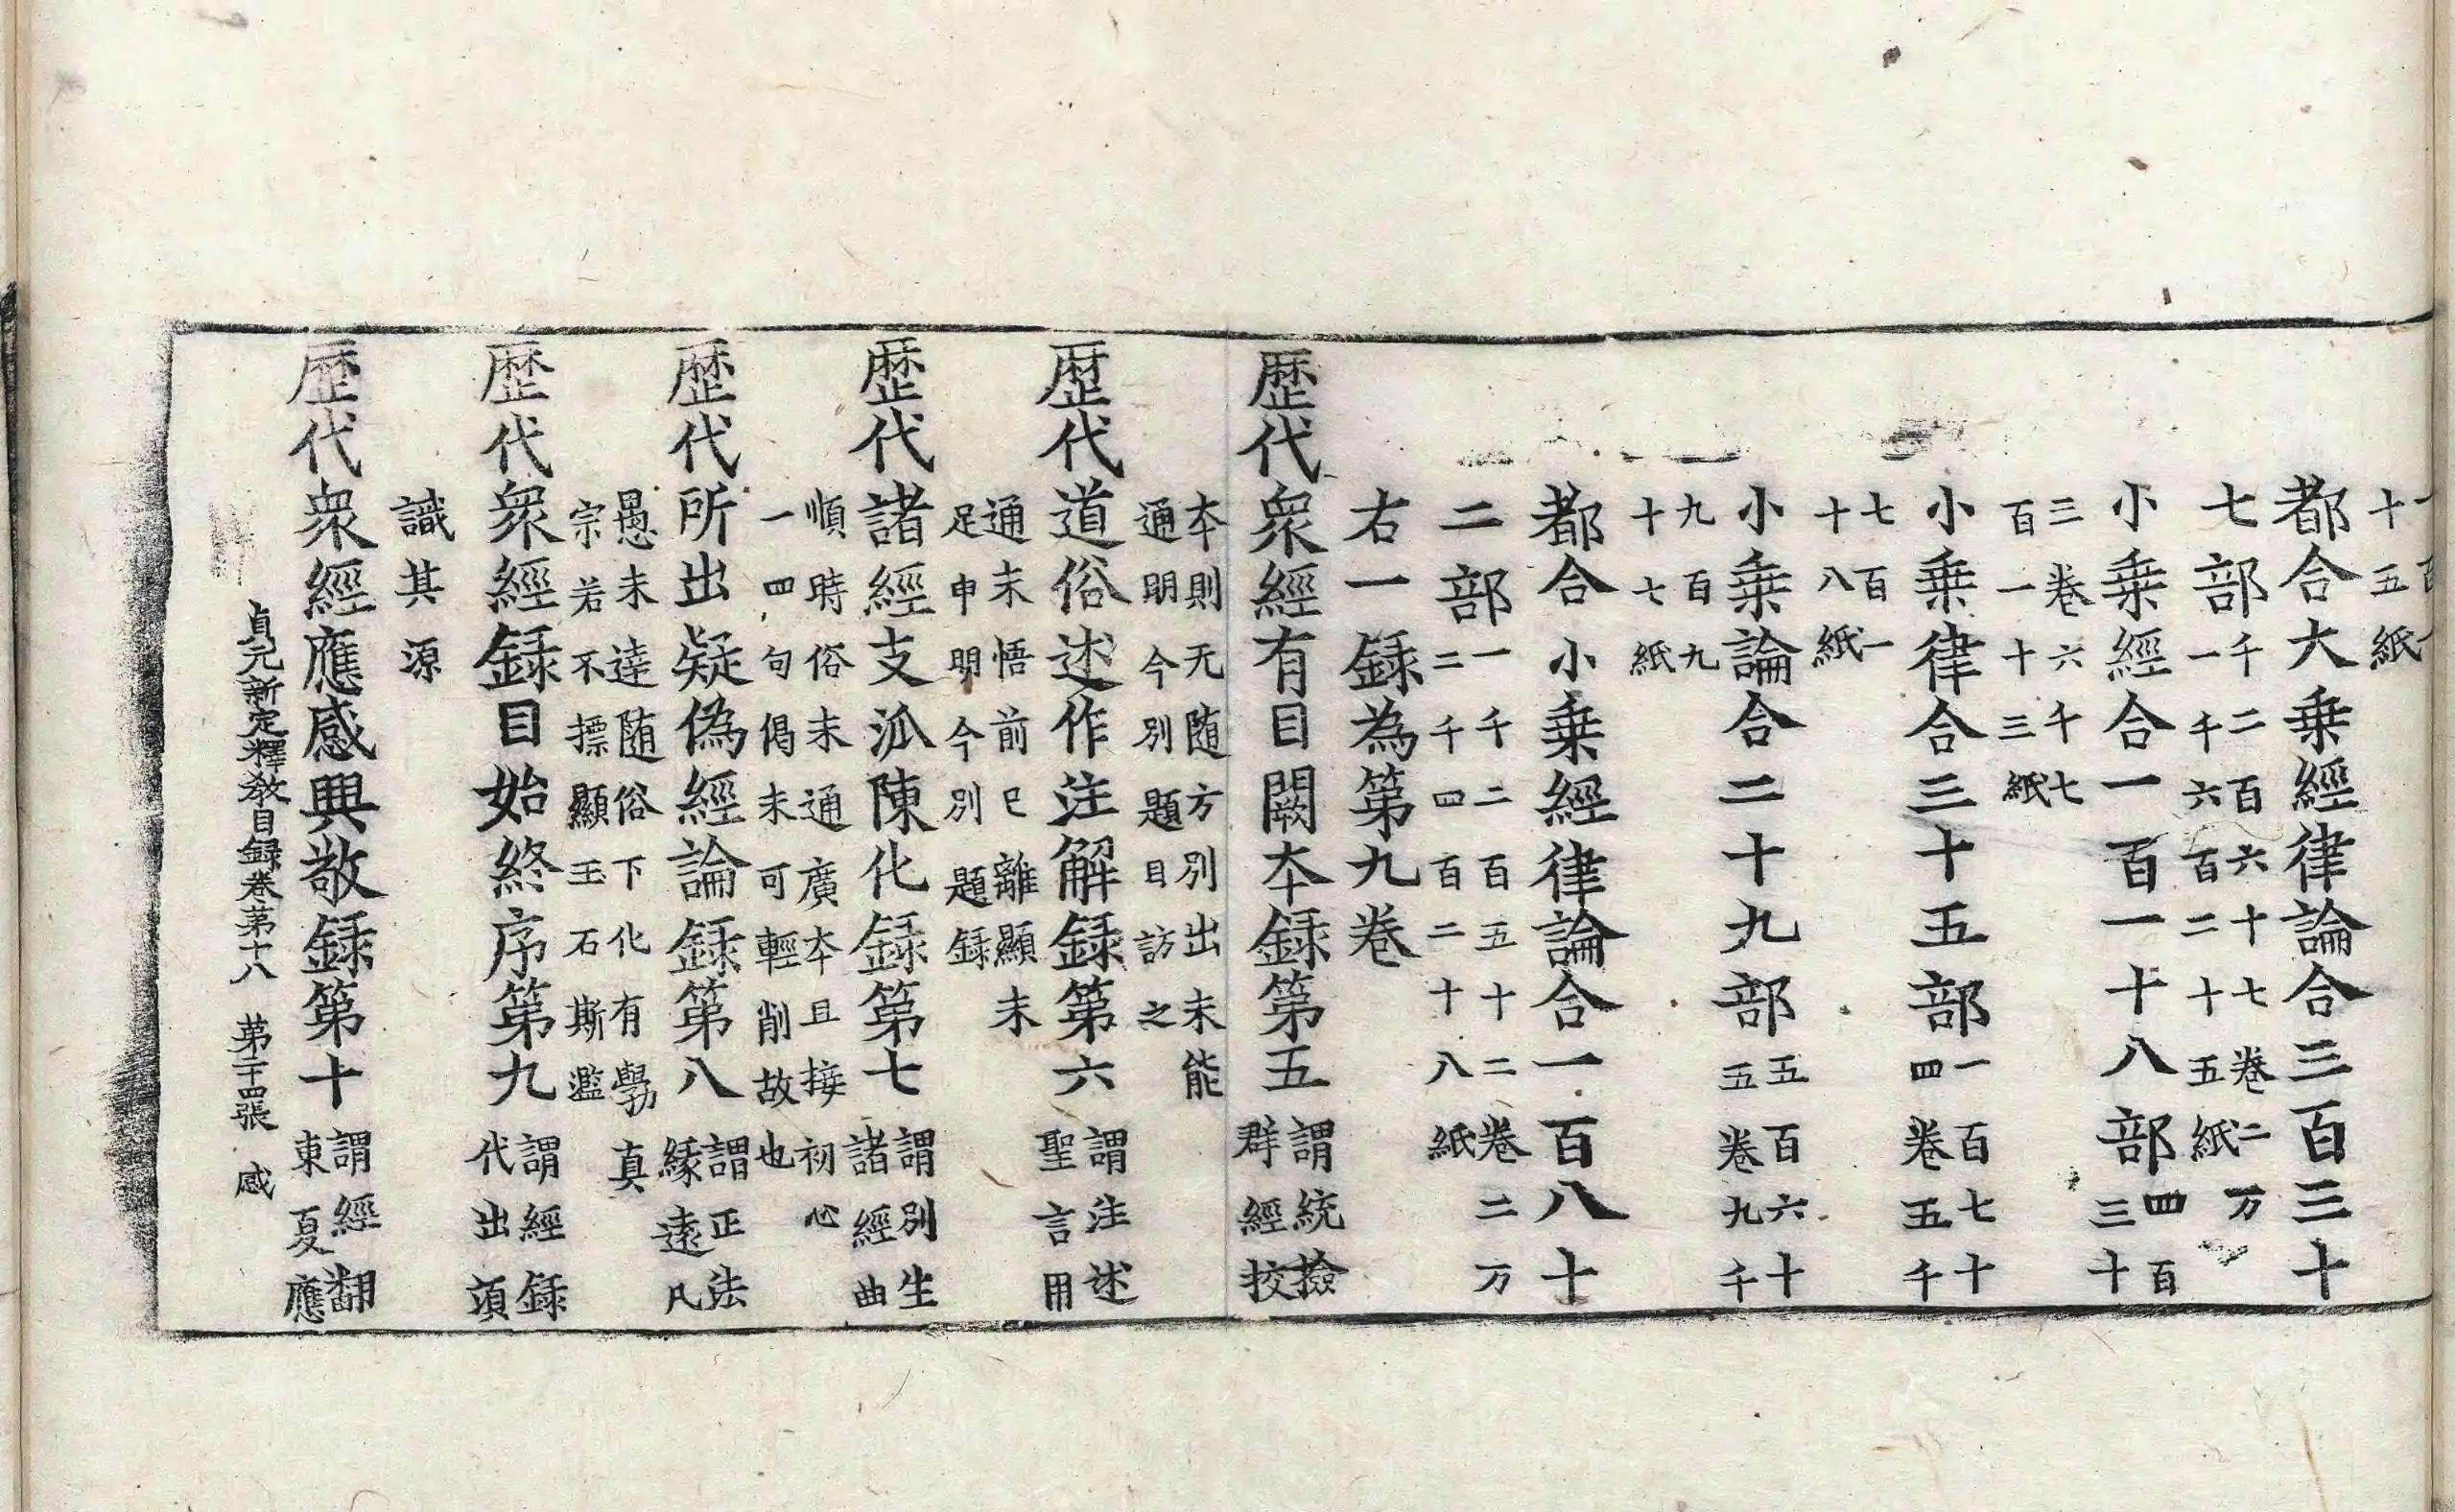 十五紙
都合大乗經律論合三百三十
七部千二百六十七卷二万
一千六百二十五紙
小乗經合一百一十八部四百
三十
三卷六千七
百一十三紙
小乗律合三十五部一百七十
四卷五千
七百一
十八紙
小乗論合二十九部五百六十
五卷九千
九百九
十七紙
都合小乗經律論合一百八十
二部一千二百五十二卷二万
二千四百二十八紙
右一録為第九卷
歴代衆經有目闕夲録第五謂統撿
群經挍
夲則无随方別出未能
通明今別題目訪之
歴代道俗述作注解録第六謂注述
聖言用
通未悟前已離顯未
足申明今別題録
歴代諸經支泒陳化録第七謂別生
諸經曲
順時俗未通廣夲且接初心
一四句偈未可輕削故也
歴代所出疑偽經論録第八謂正法
縁遠凡
愚未達随俗下化有學真
宗若不摽顯玉石斯濫
歴代衆經録目始終序第九謂經録
代出須
識其源
歴代衆經應感興敬録第十謂經翻
東夏應
貞元新定釋教目録卷第十八　第二十四張　感